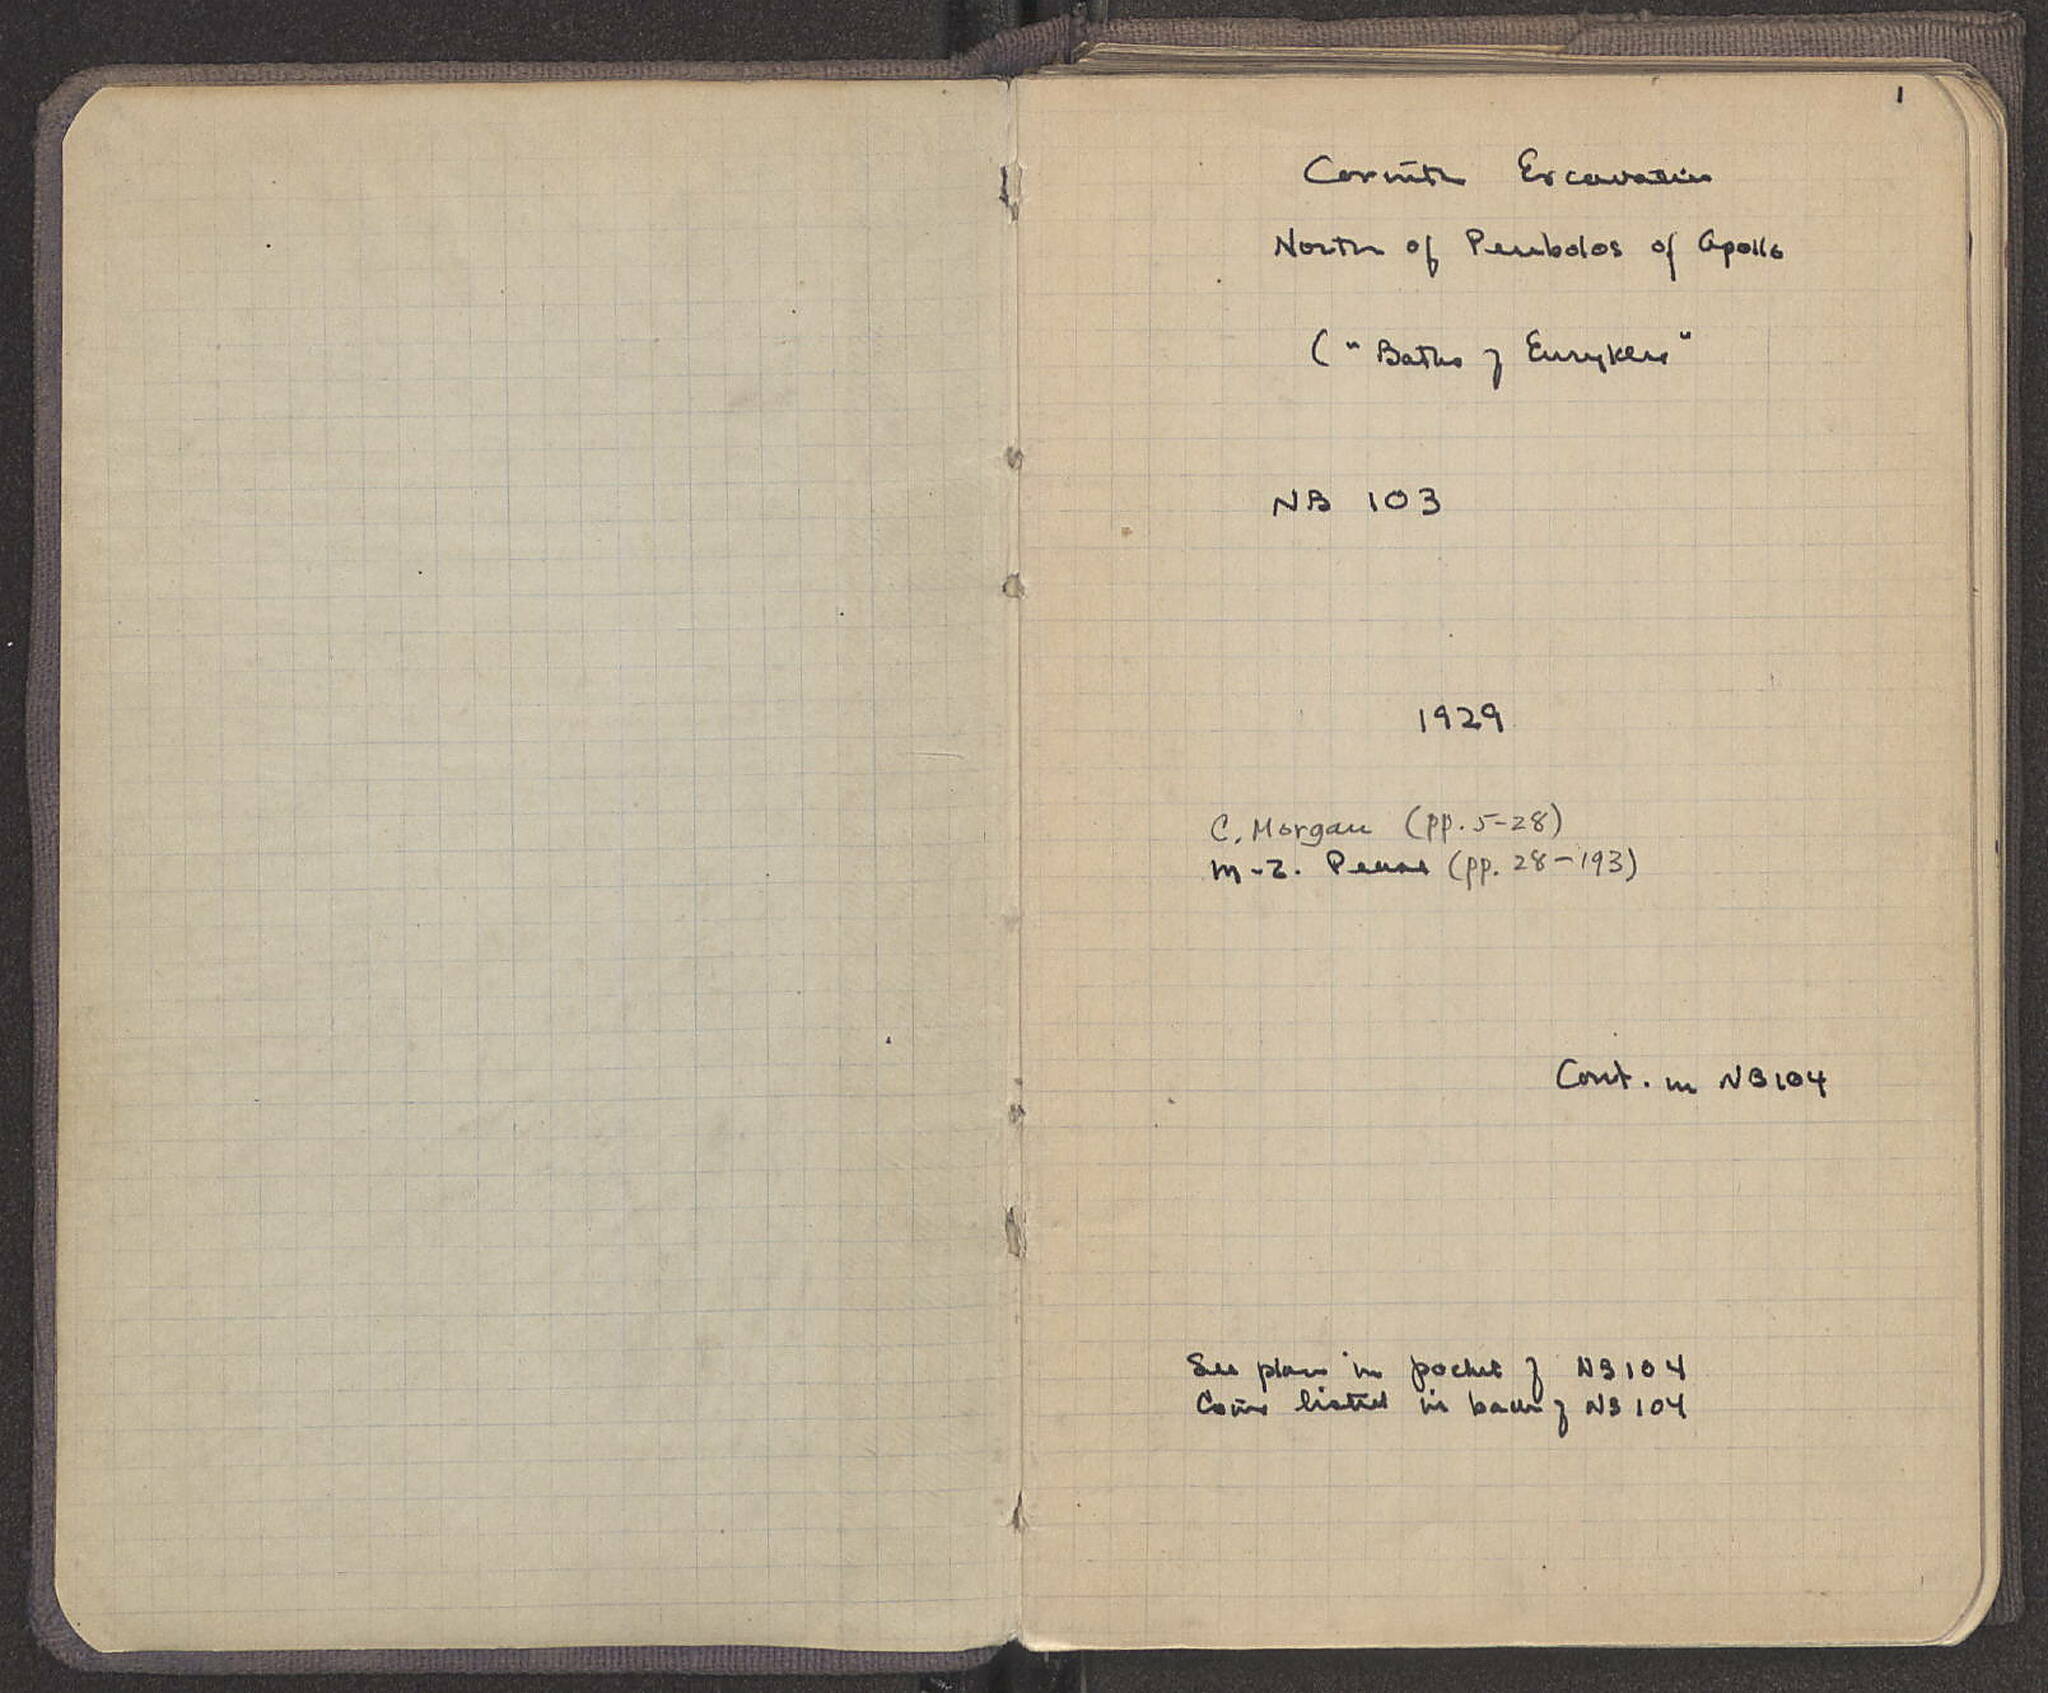 1
Corinth Excavation
North of Peribolos of Apollo
( "Baths of Eurykles"
NB 103
1929
C. Morgan (pp. 5-28)
M-Z. Pease (pp. 28-193)
Cont. in NB 104
See plan in pocket of NB 104
Coins listed in back of NB 104